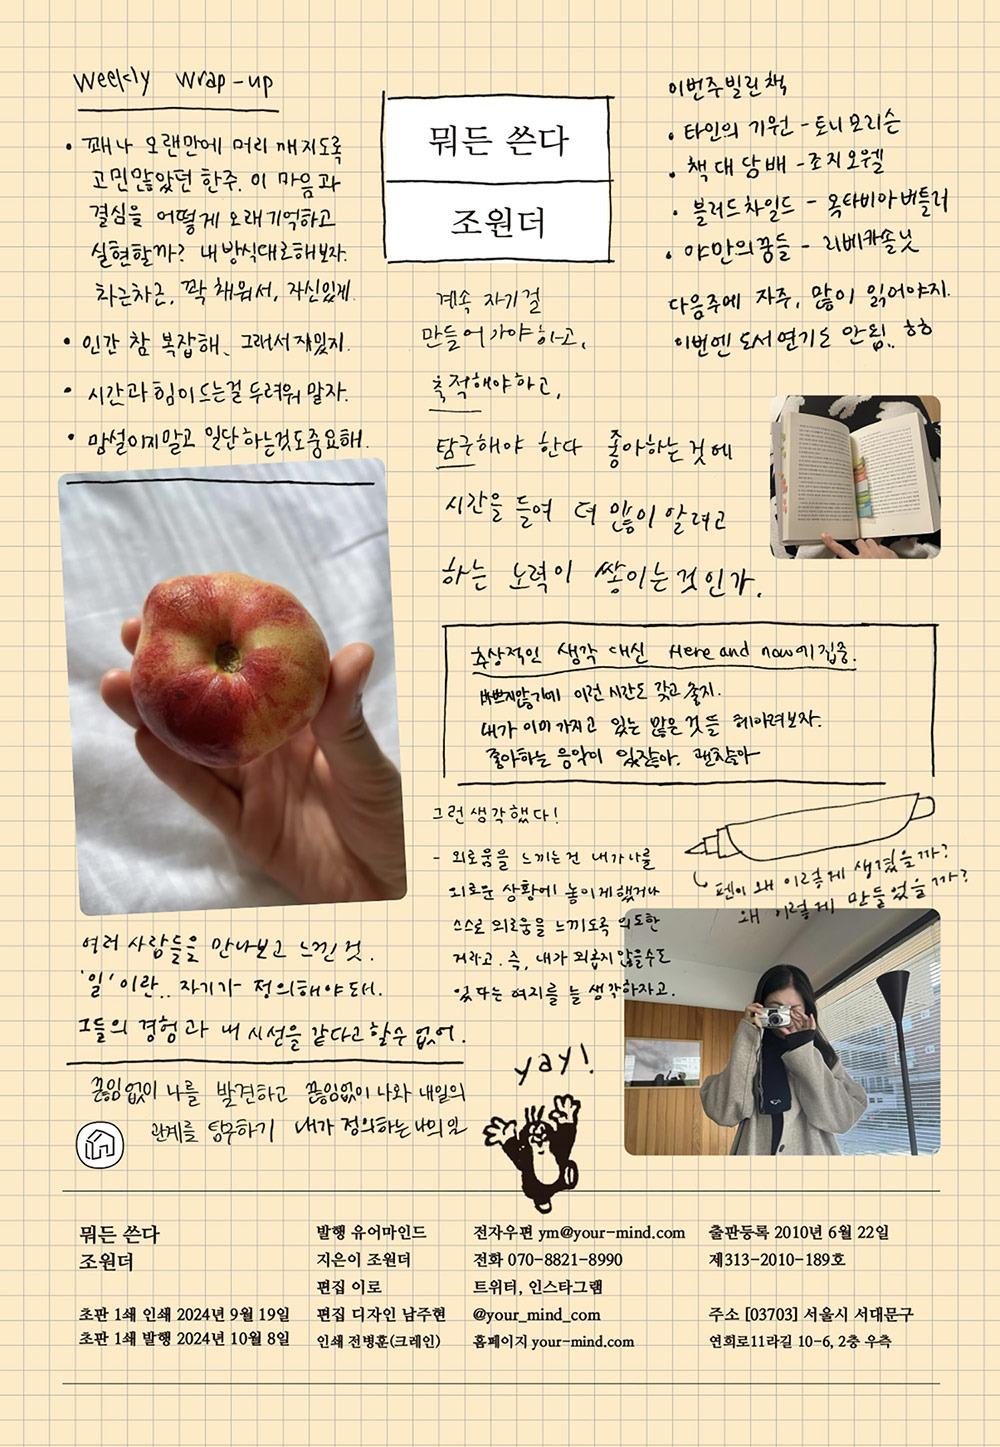 weekly wrap-up
• 꽤나 오랜만에 머리 깨지도록
고민많았던 한주. 이 마음과
결심을 어떻게 오래기억하고
실현할까? 내 방식대로해보자.
차근차근, 꽉 채워서, 자신있게.
• 인간 참 복잡해. 그래서 재밌지.
• 시간과 힘이 드는걸 두려워 말자.
• 망설이지말고 일단 하는것도중요해.
뭐든 쓴다
조원더
이번주 빌린 책
• 타인의 기원 - 토니 모리슨
• 책 대 담배 - 조지 오웰
• 블러드차일드 - 옥타비아 버틀러
• 야만의 꿈들 - 리베카 솔닛
다음주에 자주, 많이 읽어야지.
이번엔 도서 연기도 안됨.. ㅎㅎ
계속 자기걸
만들어 가야 하고,
축적해야하고,
탐구해야 한다 좋아하는 것에
시간을 들여 더 많이 알려고
하는 노력이 쌓이는 것인가.
추상적인 생각 대신 Here and now에 집중.
바쁘지않기에 이런 시간도 갖고 좋지.
내가 이미 가지고 있는 많은 것들 헤아려보자.
좋아하는 음악이 있잖아. 괜찮아
그런 생각했다!
- 외로움을 느끼는건 내가 나를
외로운 상황에 놓이게 했거나
스스로 외로움을 느끼도록 의도한
거라고. 즉, 내가 외롭지 않을수도
있다는 여지를 늘 생각하자고.
펜이 왜 이렇게 생겼을까?
왜 이렇게 만들었을까?
여러 사람들을 만나보고 느낀 것.
'일'이란.. 자기가 정의해야 돼.
그들의 경험과 내 시선을 같다고 할수 없어.
끊임없이 나를 발견하고 끊임없이 나와 내일의
관계를 탐구하기 내가 정의하는 나의 일
yay!
뭐든 쓴다
조원더
초판 1쇄 인쇄 2024년 9월 19일
초판 1쇄 발행 2024년 10월 8일
발행 유어마인드
지은이 조원더
편집 이로
편집 디자인 남주현
인쇄 전병훈(크레인)
전자우편 ym@your-mind.com
전화 070-8821-8990
트위터, 인스타그램
@your_mind_com
홈페이지 your-mind.com
출판등록 2010년 6월 22일
제313-2010-189호
주소 [03703] 서울시 서대문구
연희로11라길 10-6, 2층 우측